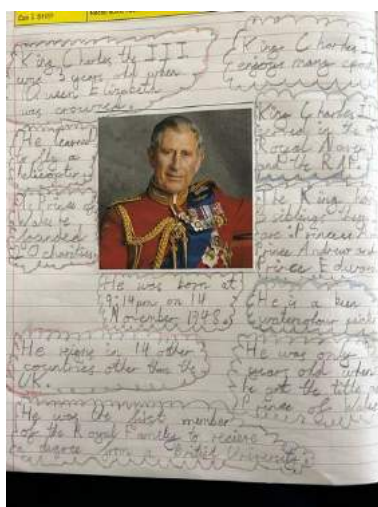 Can I
King Charles the III
was 3 years old when
Queen Elizabeth
was crowned.
King Charles I
enjoys many
He learned
to fly a
helicopter
King Charles I
served in the
Royal Navy
and the RAF.
Prince of
Wales he
founded
charities
The King ha
siblings they
are: Princess A
Prince Andrew and
Prince Edwar
He was born at
9:14pm on 14
November 1948.
He is a keen
He reigns in 14 other
countries other than the
UK.
He was only
years old when
he got the title
Prince of Wales
He was the first member
of the Royal Family to recieve
a degree from a British University.